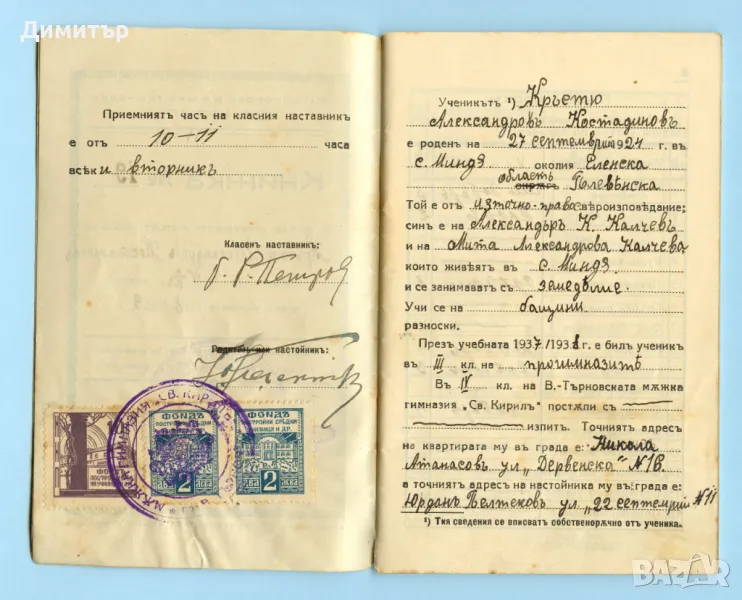 Димитър
Приемниятъ часъ на класния наставникъ
е отъ 10-11 часа
всѣки вторникъ
Класенъ наставникъ:
Р. Петров
Родительъ или настойникъ:
МѪЖКА ГИМНАЗИЯ „СВ. КИРИЛЪ
ФОНДЪ
ФОНДЪ
2 ЛЕВА 2
2 ЛЕВА 2
Ученикътъ ¹) Кръстю
Александровъ Костадиновъ
е роденъ на 27 септемврий 1924 г. въ
с. Миндя околия Еленска
область
окрѫгъ Плевѣнска
Той е отъ източно-право вѣроизповѣдание;
синъ е на Александъръ К. Калчевъ
и на Мита Александрова Калчева
които живѣятъ въ с. Миндя
и се занимаватъ съ земедѣлие.
Учи се на бащини
разноски.
Презъ учебната 1937/1938 г. е билъ ученикъ
въ III кл. на прогимназитѣ
Въ IV кл. на В.-Търновската мѫжка
гимназия „Св. Кирилъ" постѫпи съ
изпитъ. Точниятъ адресъ
на квартирата му въ града е: Никола
Атанасовъ ул. „Дервенска" №16.
а точниятъ адресъ на настойника му въ града е:
Юрданъ Пелтековъ ул. „22 септемврий №11
¹) Тия сведения се вписватъ собственорѫчно отъ ученика.
BAZAR